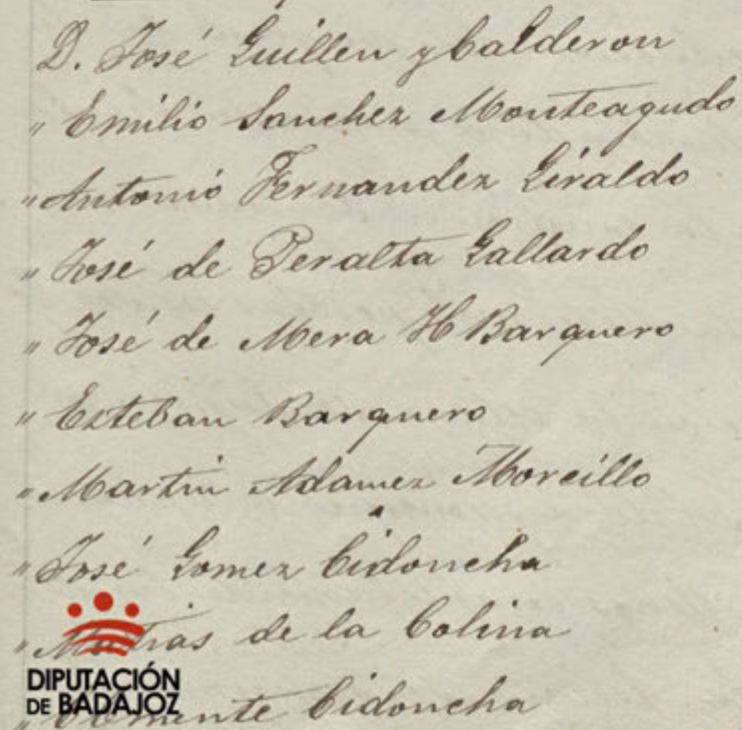 D. José Guillen y Calderon
" Emilio Sanchez Monteagudo
" Antonio Fernandez Giraldo
" José de Peralta Gallardo
" José de Mera H Barquero
" Esteban Barquero
" Martin Adamez Morcillo
" José Gomez Cidoncha
" Matias de la Colina
DIPUTACIÓN
DE BADAJOZ
" Cidoncha